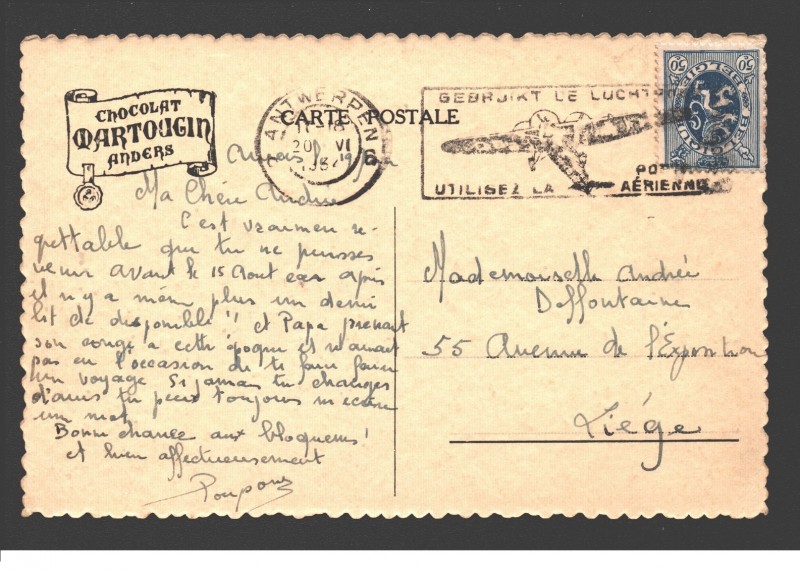 CHOCOLAT
MARTOUGIN
ANVERS
CARTE POSTALE
ANTWERPEN 6
20 VI
GEBRUIKT LE LUCHT
UTILISEZ LA POSTE AÉRIENNE
50 50
Anvers le 19
Ma Chère Andrée
C'est vraiment re-
grettable que tu ne puisses
venir avant le 15 Août car après
il n'y a même plus un demi
lit de disponible!! et Papa prenant
son congé à cette époque il n'aurait
pas eu l'occasion de te faire faire
un voyage. Si jamais tu changes
d'avis tu peux toujours m'écrire
un mot
Bonne chance aux bloqueurs!
et bien affectueusement
Poupous
Mademoiselle Andrée
Deffontaine
55 Avenue de l'Exposition
Liége